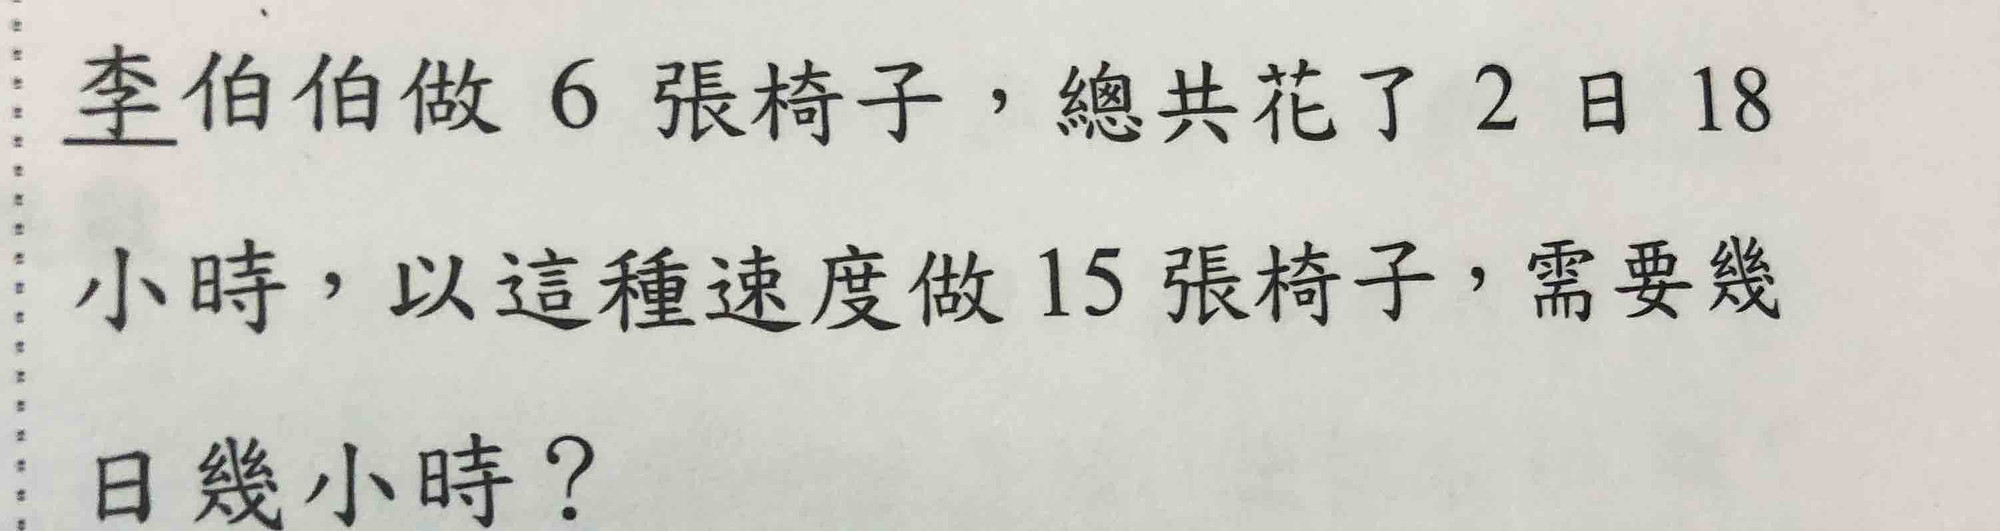 李伯伯做 6 張椅子，總共花了 2 日 18
小時，以這種速度做 15 張椅子，需要幾
日幾小時？